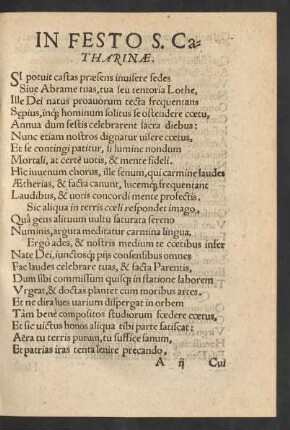 IN FESTO S. Ca-
THARINÆ.
SI potuit castas præsens inuisere sedes
Siue Abrame tuas, tua seu tentoria Lothe,
Ille Dei natus proauorum tecta frequentans
Sępius, inq́; hominum solitus se ostendere cœtu,
Annua dum festis celebrarent sacra diebus:
Nunc etiam nostros dignatur uisere cœtus,
Et se contingi patitur, si lumine nondum
Mortali, at certè uotis, & mente fideli.
Hic iuuenum chorus, ille senum, qui carmine laudes
Ætherias, & facta canunt, lucemq́; frequentant
Laudibus, & uotis concordi mente profectis.
Sic aliqua in terris cœli respondet imago,
Quà gens alituum uultu saturata sereno
Numinis, arguta meditatur carmina lingua.
Ergò ades, & nostris medium te cœtibus infer
Nate Dei, iunctosq́; pijs consensibus omnes
Fac laudes celebrare tuas, & facta Parentis,
Dum sibi commissum quisq; in statione laborem
Vrget, & doctas plantet cum moribus artes.
Et ne dira lues uarium dispergat in orbem
Tàm benè compositos studiorum fœdere cœtus,
Et sic uictus honos aliqua tibi parte fatiscat:
Aëra tu terris purum, tu suffice sanum,
Et patrias iras tenta lenire precando,
A ij Cui